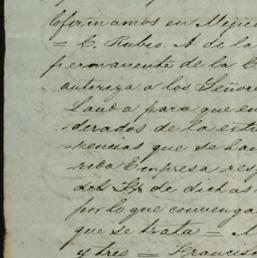 Cofirinamos en Mejico
= C. Rubio. A de la
permanente de la C
autoriza a los Señore
Landa para que en
derados de la extin
rencias que se ha
rida Empresa resp
del de dichas
por lo que convenga
que se trata = M
y tres = Francisco